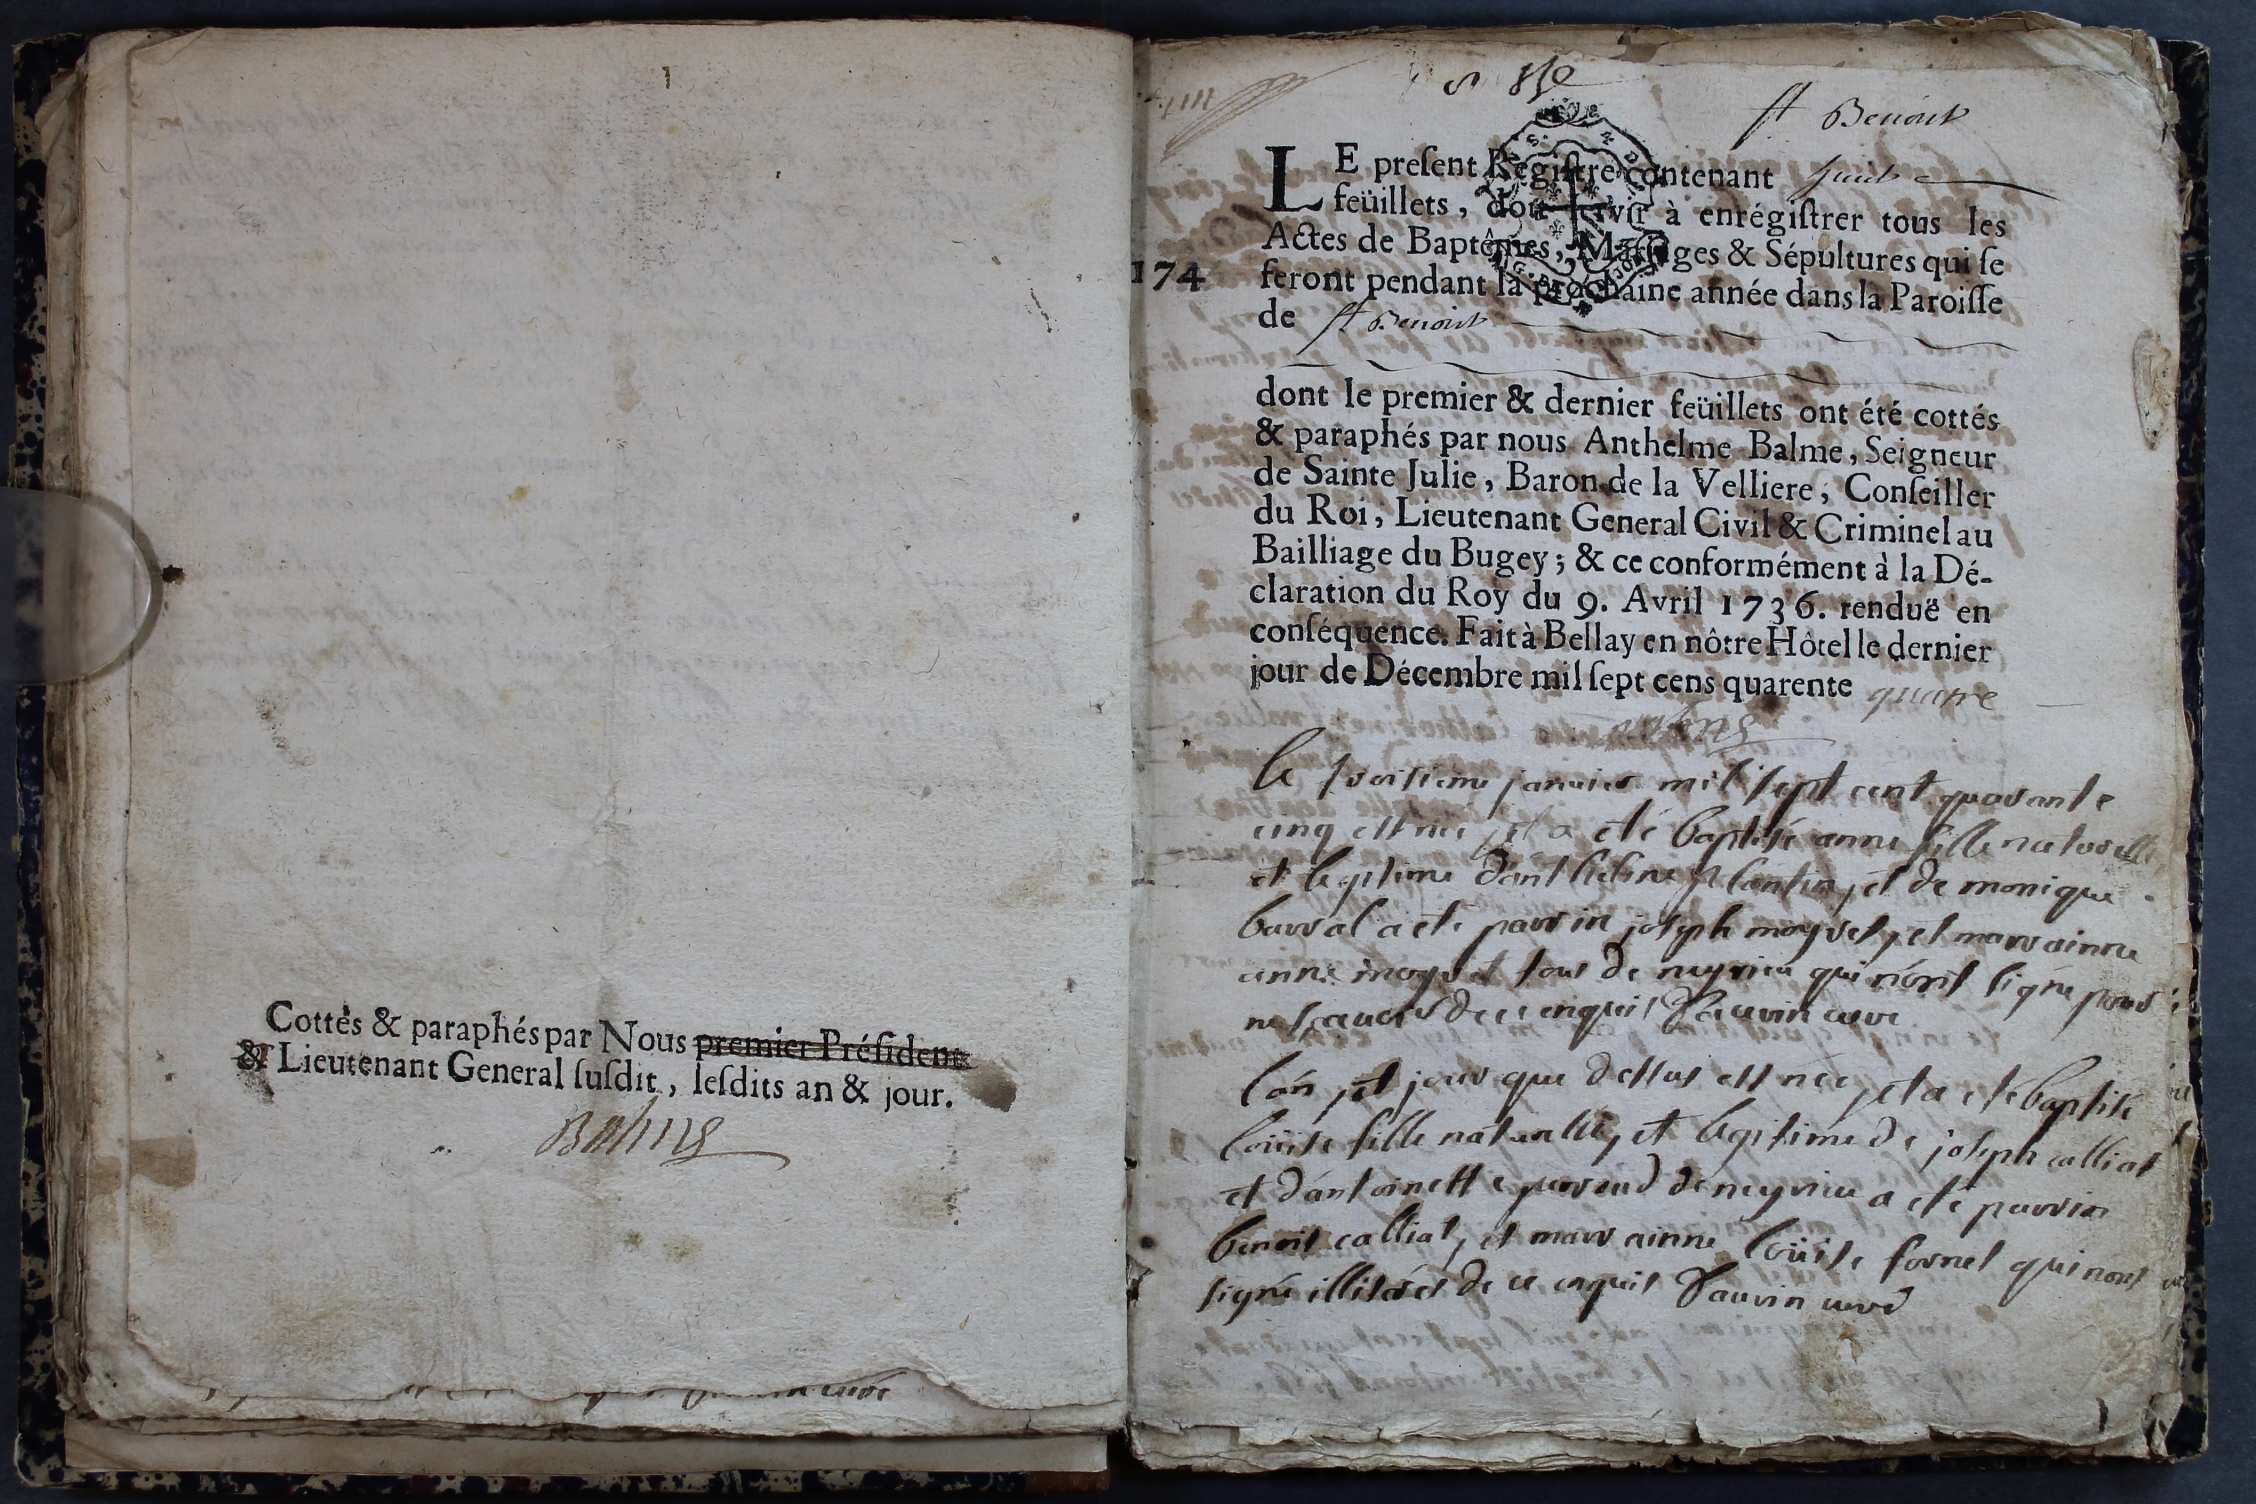 Cottés & paraphés par Nous premier Préſident
& Lieutenant General ſuſdit, leſdits an & jour.
Balme
curé
St Benoit
LE preſent Regiſtre contenant huit
feüillets, doit ſervir à enrégiſtrer tous les
Actes de Baptêmes, Mariages & Sépultures qui ſe
174
feront pendant la prochaine année dans la Paroiſſe
de St Benoit
dont le premier & dernier feüillets ont été cottés
& paraphés par nous Anthelme Balme, Seigneur
de Sainte Julie, Baron de la Velliere, Conſeiller
du Roi, Lieutenant General Civil & Criminel au
Bailliage du Bugey; & ce conformément à la Dé-
claration du Roy du 9. Avril 1736. renduë en
conſéquence. Fait à Bellay en nôtre Hôtel le dernier
jour de Décembre mil ſept cens quarente quatre
Balme
le troisieme janvier mil sept cent quarante
cinq est née et a eté baptisé anne fille naturelle
et legitime d'anthelme et de monique
barral a eté parrin joseph moyret, et marrainne
anne moyret tous de neyrieu qui n'ont signé pour
ne sçavoir de ce enquis Dauvin curé
l'an et jour que dessus est née, et a eté baptisé
loüise fille naturelle, et legitime de joseph calliat
et d'antoinette de neyrieu a eté parrin
benoit calliat, et marrainne loüise fornet qui n'ont
signé illiterés de ce enquis Dauvin curé